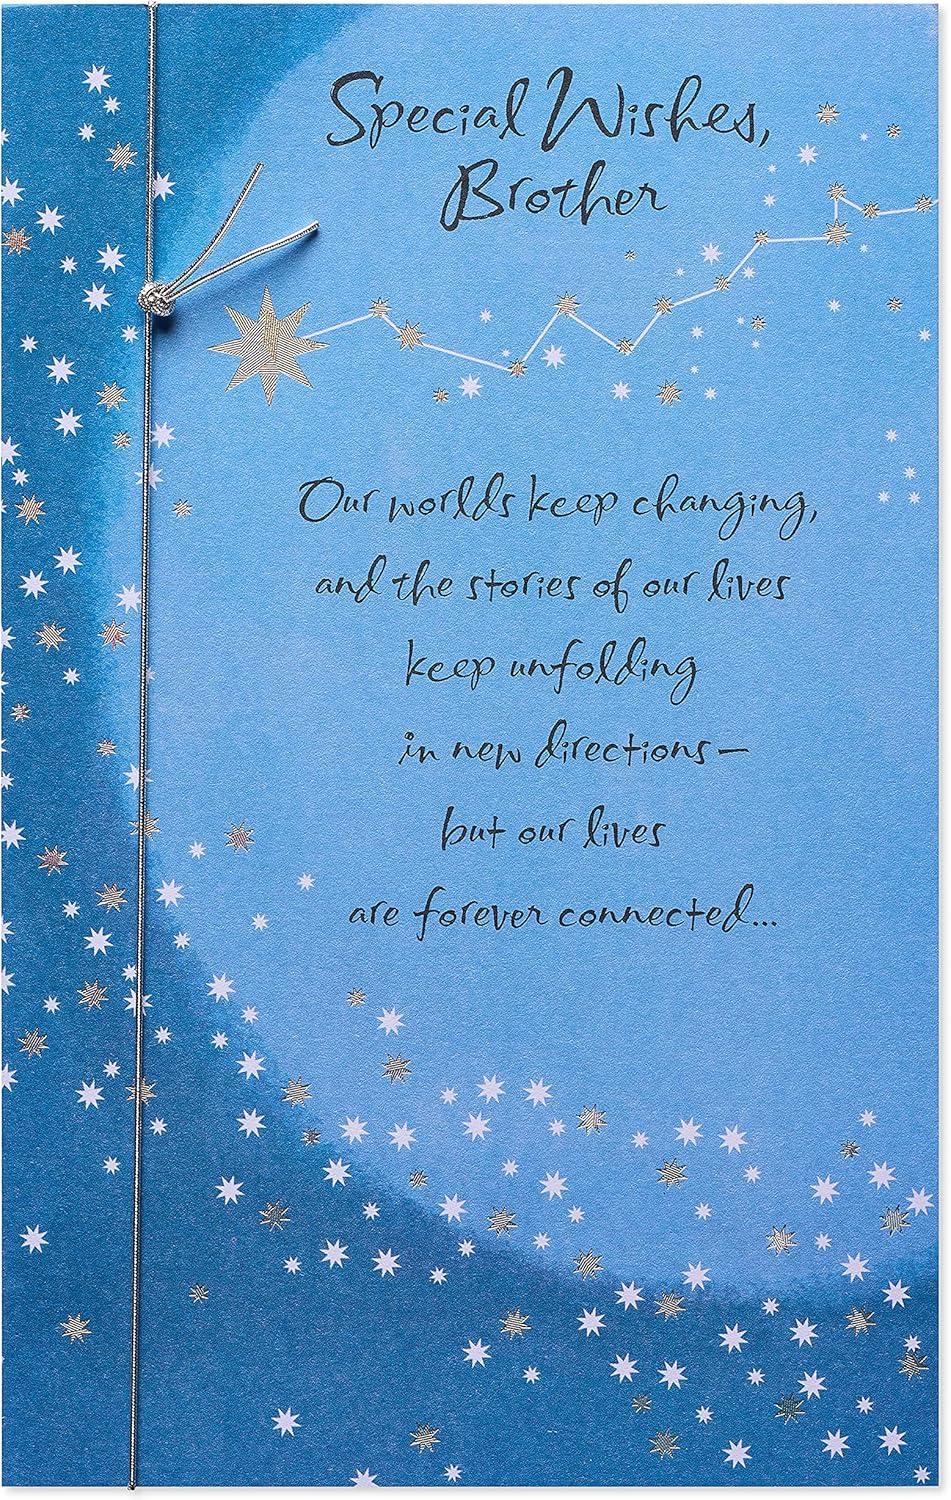 Special Wishes,
Brother
Our worlds keep changing,
and the stories of our lives
keep unfolding
in new directions—
but our lives
are forever connected...